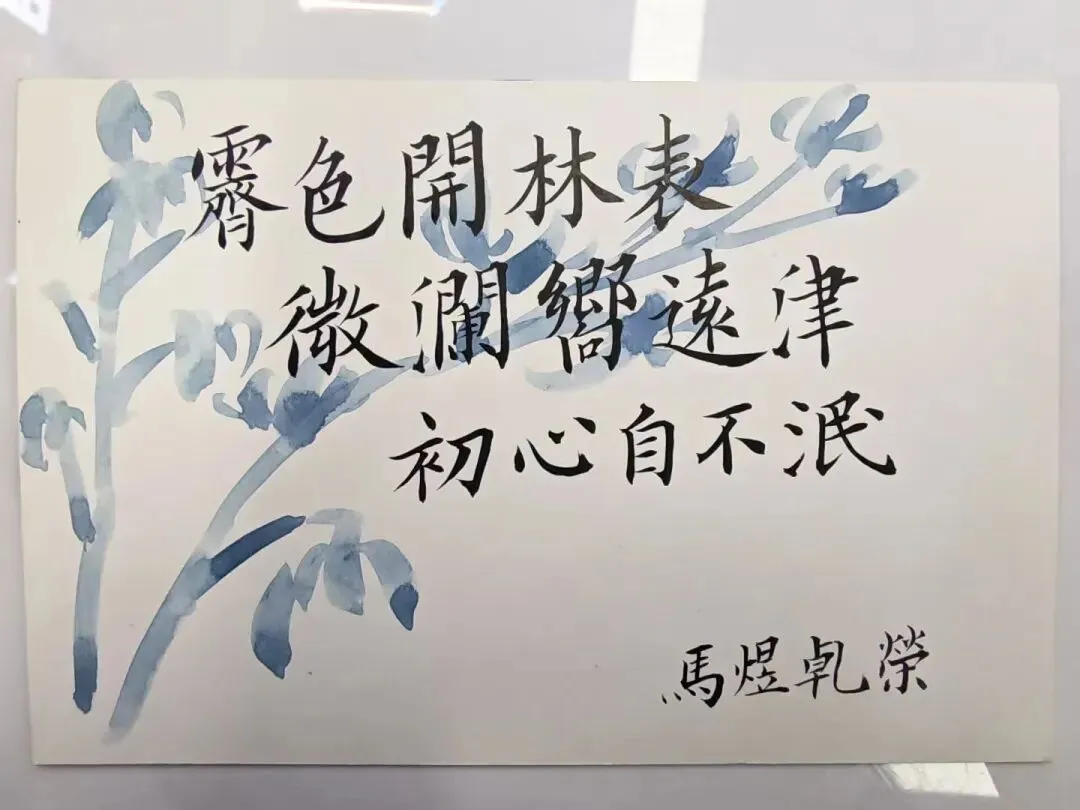 霽色開林表
微瀾嚮遠津
初心自不泯
馬煜乹榮